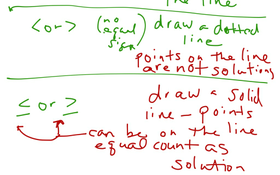 the line
< or > (no equal sign) draw a dotted line
points on the line
are not solutions
≤ or ≥ draw a solid
line - points
can be on the line
equal count as
solution